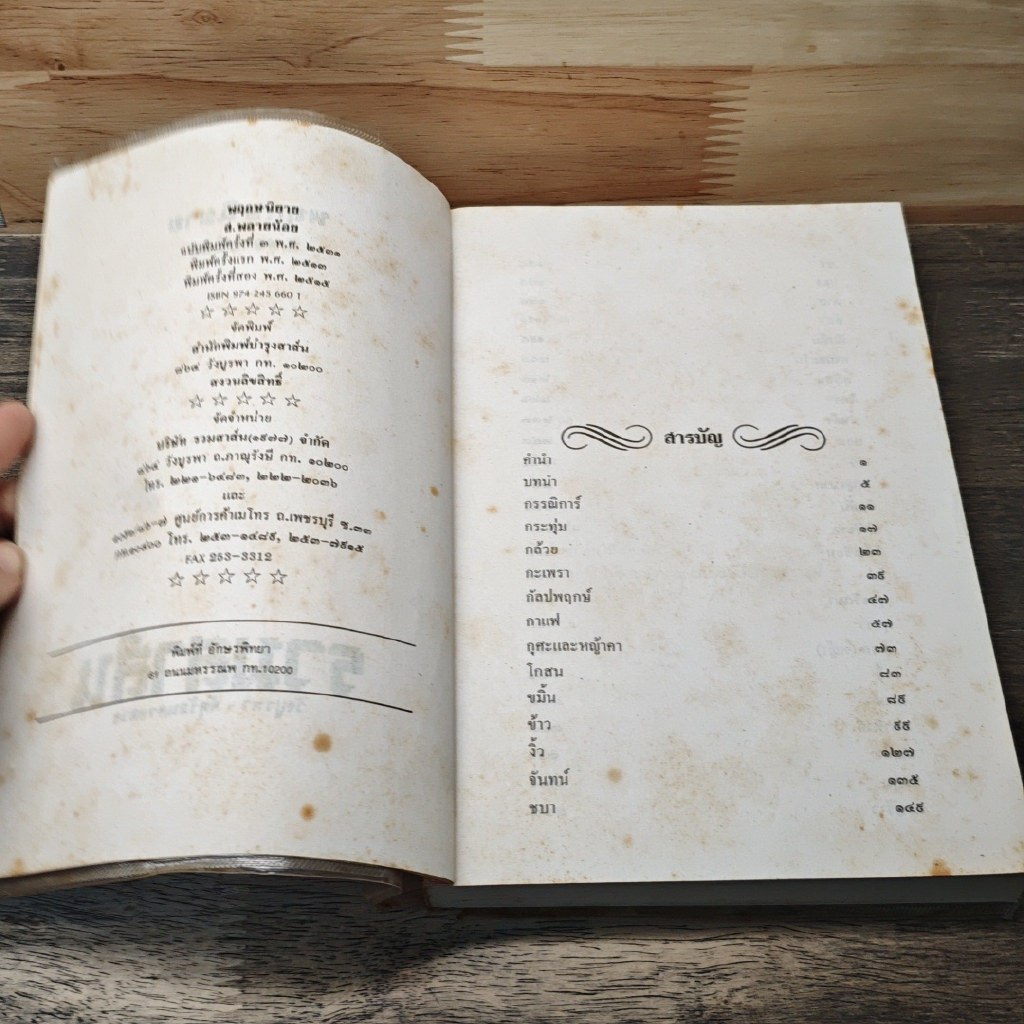 พฤกษนิยาย
ส.พลายน้อย
ฉบับพิมพ์ครั้งที่ ๓ พ.ศ. ๒๕๓๑
พิมพ์ครั้งแรก พ.ศ. ๒๕๑๓
พิมพ์ครั้งที่สอง พ.ศ. ๒๕๑๕
ISBN 974 243 660 1
☆ ☆ ☆ ☆ ☆
จัดพิมพ์
สำนักพิมพ์บำรุงสาส์น
๘๖๔ วังบูรพา กท. ๑๐๒๐๐
สงวนลิขสิทธิ์
☆ ☆ ☆ ☆ ☆
จัดจำหน่าย
บริษัท รวมสาส์น(๑๙๗๗) จำกัด
๘๖๔ วังบูรพา ถ.ภาณุรังษี กท. ๑๐๒๐๐
โทร. ๒๒๑-๖๔๘๓, ๒๒๒-๒๐๓๖
และ
ศูนย์การค้าเมโทร ถ.เพชรบุรี ซ.๓๑
โทร. ๒๕๓-๑๔๘๙, ๒๕๓-๗๙๑๕
FAX 253-3312
☆ ☆ ☆ ☆ ☆
พิมพ์ที่ อักษรพิทยา
ถนนมหรรณพ กท.10200
สารบัญ
คำนำ ๑
บทนำ ๕
กรรณิการ์ ๑๑
กระทุ่ม ๑๗
กล้วย ๒๓
กะเพรา ๓๙
กัลปพฤกษ์ ๔๗
กาแฟ ๕๗
กุศะและหญ้าคา ๗๓
โกสน ๘๓
ขมิ้น ๘๙
ข้าว ๙๙
งิ้ว ๑๒๗
จันทน์ ๑๓๕
ชบา ๑๔๙